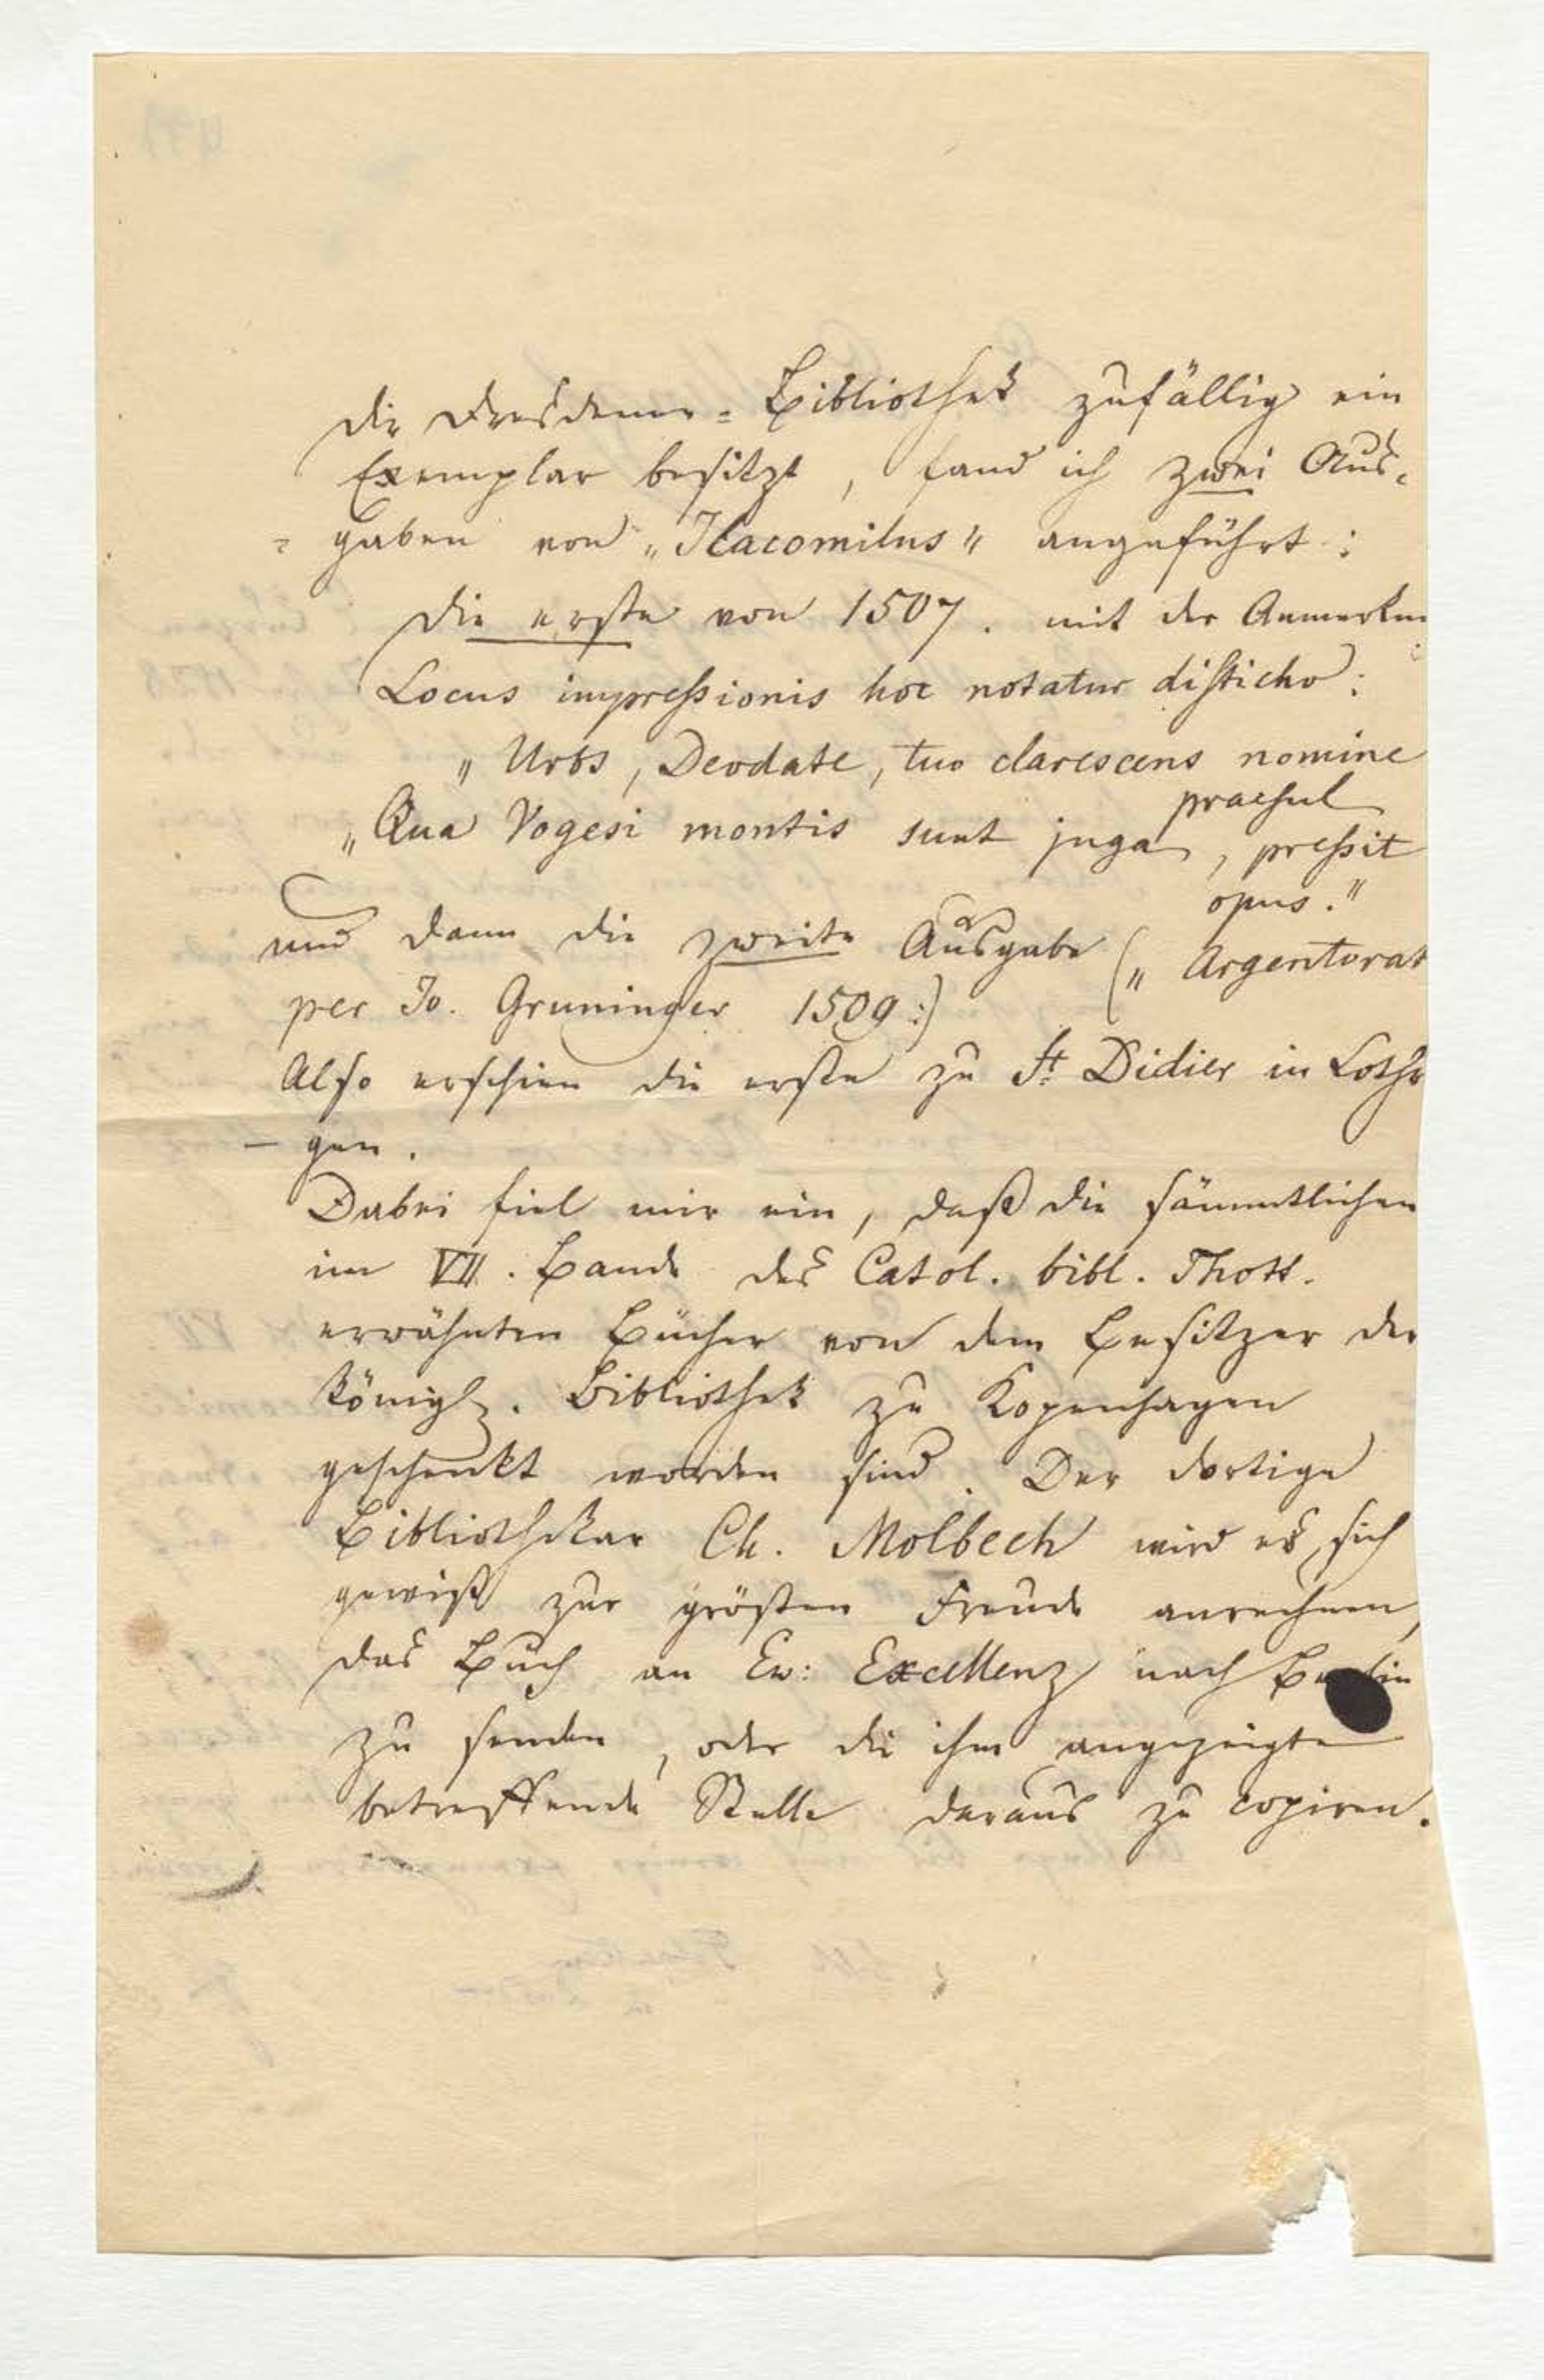 die Dresdener-Bibliothek zufällig ein
Exemplar besitzt, fand ich zwei Aus-
=gaben von „Ilacomilus" angeführt:
die erste von 1507. mit der Anmerkun
Locus impressionis hoc notatur disticho:
„Urbs, Deodate, tuo clarescens nomine
praesul
„Qua Vogesi montis sunt juga, pressit
opus."
und dann die zweite Ausgabe („Argentorat
per Jo. Gruninger 1509:)
Also erschien die erste zu St. Didier in Lothr
- gen.
Dabei fiel mir ein, daß die sämmtlichen
im VII. Bande des Catol. bibl. Thott.
erwähnten Bücher von dem Besitzer der
königl. Bibliothek zu Kopenhagen
geschenkt worden sind. Der dortige
Bibliothekar Ch. Molbech wird es sich
gewiß zur größten Freude anrechnen,
das Buch an Ew: Excellenz nach Berlin
zu senden, oder die ihm angezeigte
betreffende Stelle daraus zu copiren.